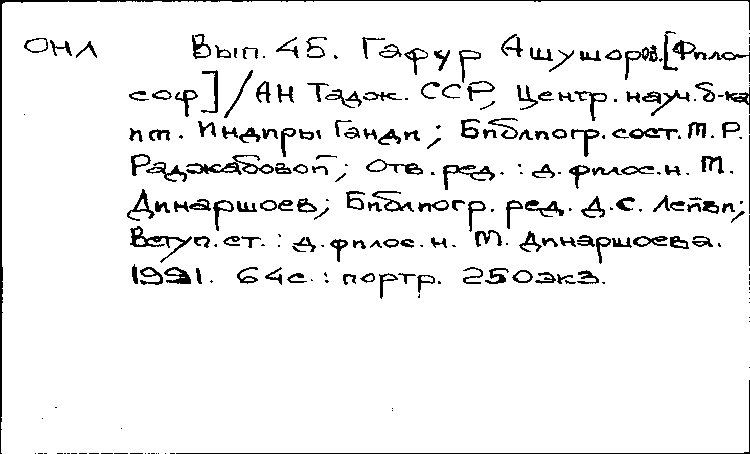 ОНЛ Вып. 45. Гафур Ашуров. [Фило-
соф] / АН Тадж. ССР, Центр. науч. б-ка
им. Индиры Ганди; Библиогр. сост. М. Р.
Раджабовой; Отв. ред.: д. филос. н. М.
Динаршоев; Библиогр. ред. Д. С. Лейви;
Вступ. ст.: д. филос. н. М. Динаршоева.
1991. 64с.: портр. 250экз.